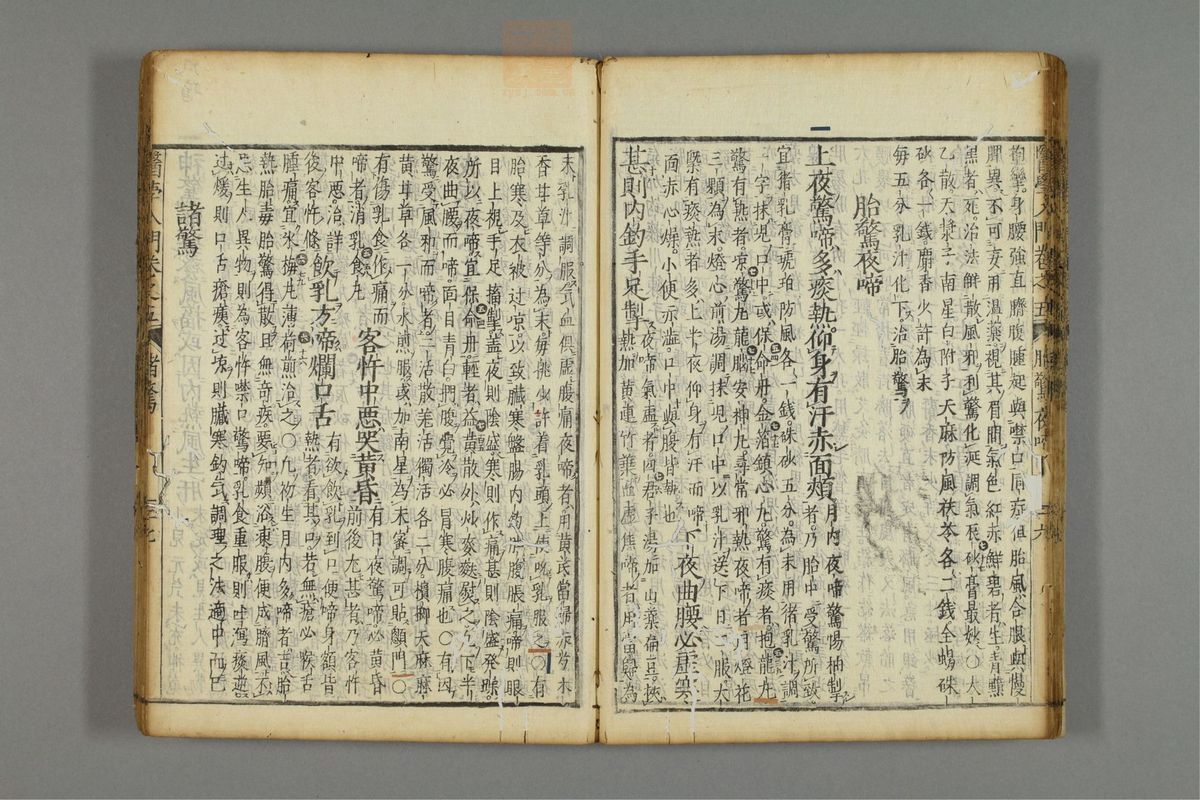 搐攣身腰強直臍腹腫起與噤口同症但胎風合眼與慢
脾異不可妄用溫藥視其眉間氣色紅赤鮮碧者生青黯
黑者死治法解散風邪利驚化涎調氣辰砂膏最妙○大
乙散天漿子南星白附子天麻防風茯苓各二錢全蝎硃
砂各一錢麝香少許為末
每五分乳汁化下治胎驚
胎驚夜啼
上夜驚啼多痰熱仰身有汗赤面頰月內夜啼驚惕抽掣
者乃胎中受驚所致
宜猪乳膏琥珀防風各一錢硃砂五分為末用猪乳汁調
一字抹兒口中或保命丹金箔鎮心丸驚有痰者抱龍丸
驚有熱者凉驚丸龍腦安神丸尋常邪熱夜啼者用燈花
三顆為末燈心前湯調抹兒口中以乳汁送下日一服大
槩有痰熱者多上半夜仰身有汗而啼
面赤心燥小便赤澁口中與腹皆熱也
下夜曲腰必虛寒
甚則內釣手足掣
夜啼氣虛者四君子湯加山藥扁豆挾
熱加黃連竹葉血虛虛焦啼者用當歸為
末乳汁調服氣血俱虛腹痛夜啼者用黃芪當歸赤芍木
香甘草等分為末每挑少許着乳頭上使吮乳服之○有
胎寒及衣被过凉以致臟寒盤腸內釣肚腹脹痛啼則眼
目上視手足搐掣盖夜則陰盛寒則作痛甚則陰盛発躁
所以夜啼宜保命丹輕者益黃散外炒麥麩熨之○下半
夜曲腰而啼面目青白捫腹覺冷必冒寒腹痛也○有因
驚受風邪而啼者二活散羌活獨活各二分檳榔天麻麻
黃甘草各一分水煎服或加南星為末蜜調可貼顖門○
有傷乳食作痛而
啼者消乳食丸
客忤中惡哭黃昏
有日夜驚啼必黃昏
前後尤甚者乃客忤
中惡治詳
後客忤條
飲乳方啼爛口舌
有欲飲乳到口便啼身額皆
熱者看其口若無瘡必喉舌
腫痛宜氷梅丸薄荷煎治之○凡初生月內多啼者吉胎
熱胎毒胎驚得散且無奇疾要知頻浴凍腹便成臍風不
忌生人異物則為客忤噤口驚啼乳食重服則吐瀉痰逆
过煖則口舌瘡瘍过凉則臟寒釣氣調理之法適中而已
諸驚
醫學入門卷之五
諸驚